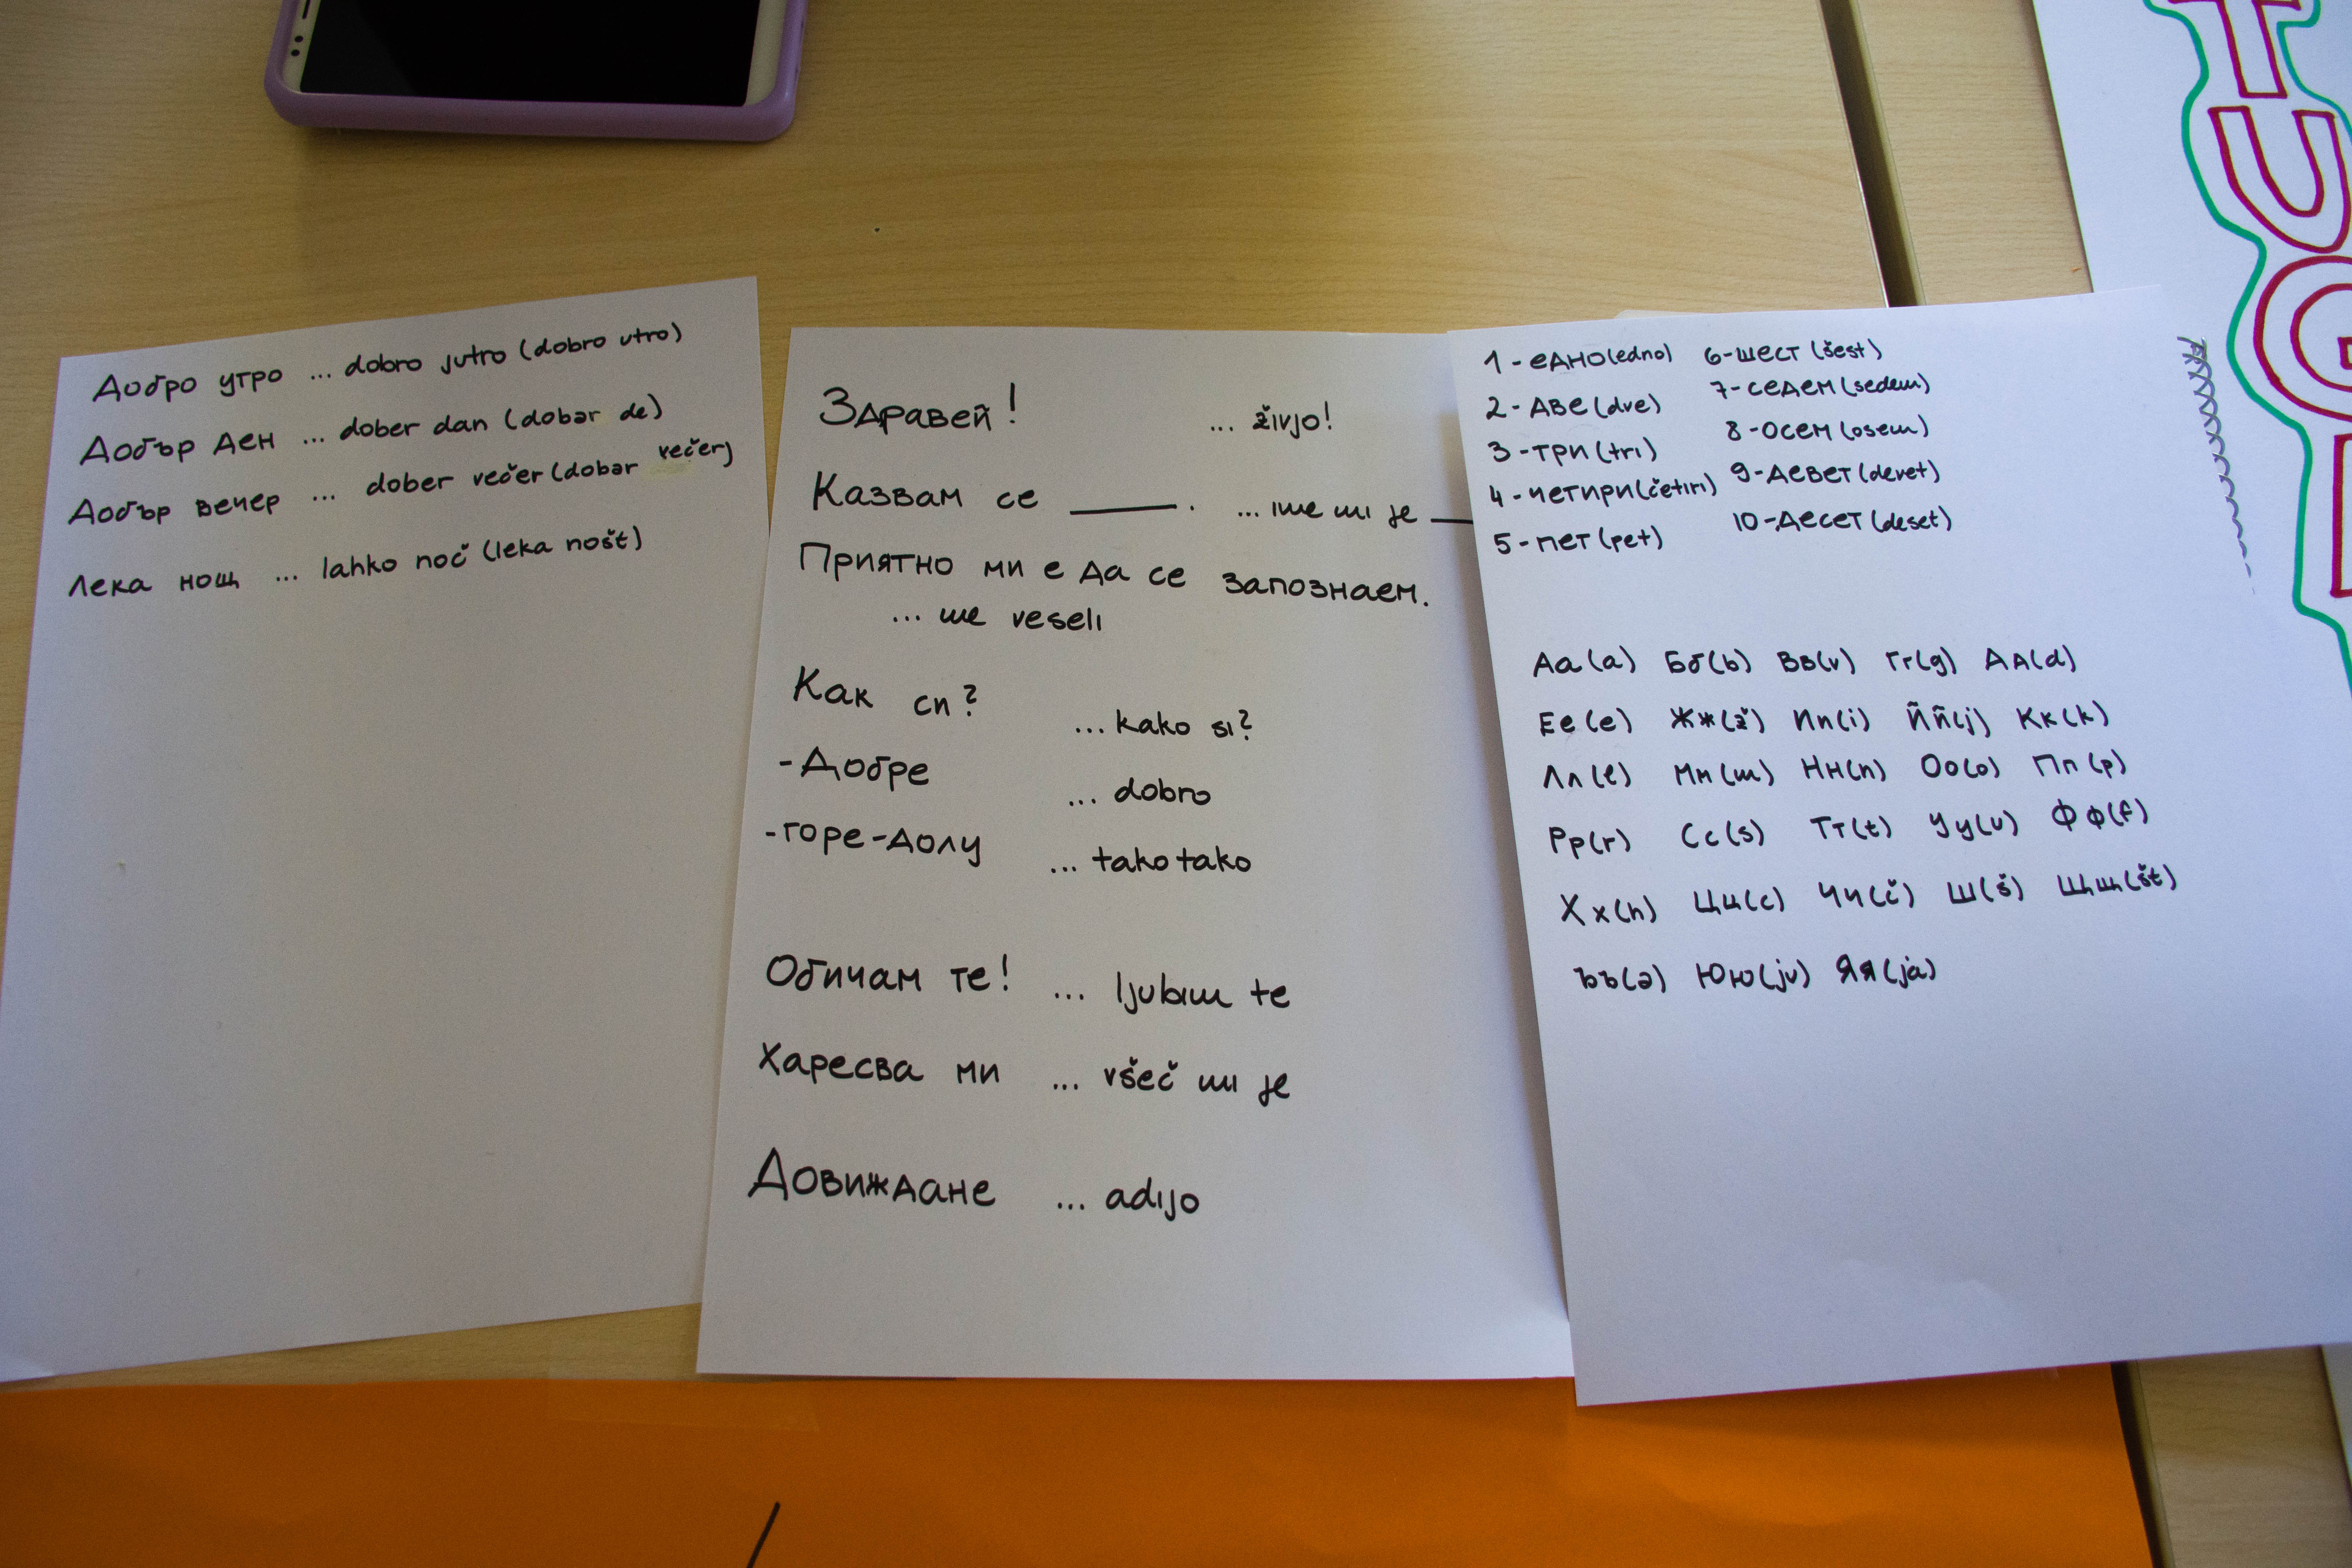 Добро утро ... dobro jutro (dobro utro)
Добър ден ... dober dan (dobər de)
Добър вечер ... dober večer (dobər večer)
Лека нощ ... lahko noč (leka nošt)
Здравей! ... živjo!
Казвам се ______. ... ime mi je __
Приятно ми е да се запознаем.
... me veseli
Как си? ... kako si?
-Добре ... dobro
-горе-долу ... tako tako
Обичам те! ... ljubim te
Харесва ми ... všeč mi je
Довиждане ... adijo
1-едно(edno) 6-шест (šest)
2-две(dve) 7-седем(sedem)
3-три(tri) 8-осем(osem)
4-четири(četiri) 9-девет(devet)
5-пет(pet) 10-десет(deset)
Аа(a) Бб(b) Вв(v) Гг(g) Дд(d)
Ее(e) Жж(ž) Ии(i) Йй(j) Кк(k)
Лл(l) Мм(m) Нн(n) Оо(o) Пп(p)
Рр(r) Сс(s) Тт(t) Уу(u) Фф(f)
Хх(h) Цц(c) Чч(č) Ш(š) Щщ(št)
Ъъ(ə) Юю(ju) Яя(ja)